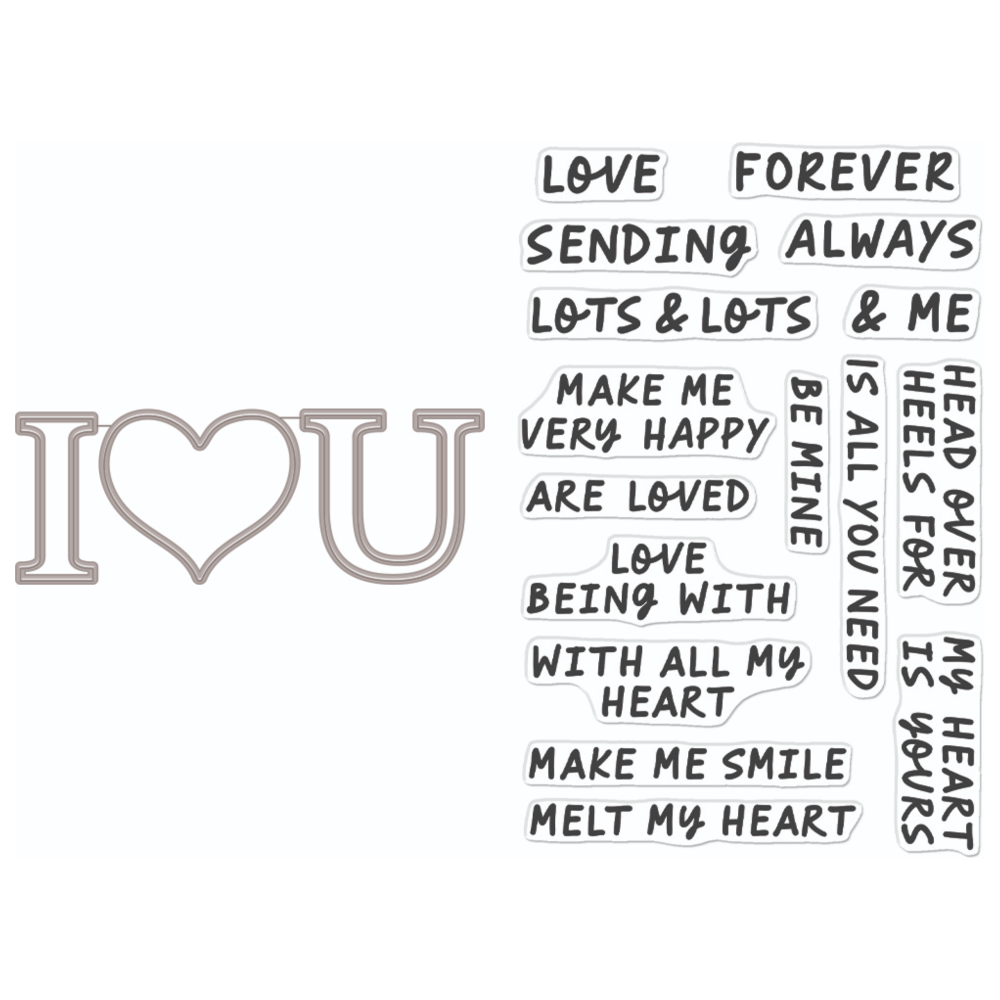 I♥U
LOVE
FOREVER
SENDING
ALWAYS
LOTS & LOTS
& ME
MAKE ME
VERY HAPPY
BE MINE
IS ALL YOU NEED
HEAD OVER
HEELS FOR
ARE LOVED
LOVE
BEING WITH
WITH ALL MY
HEART
MY HEART
IS YOURS
MAKE ME SMILE
MELT MY HEART